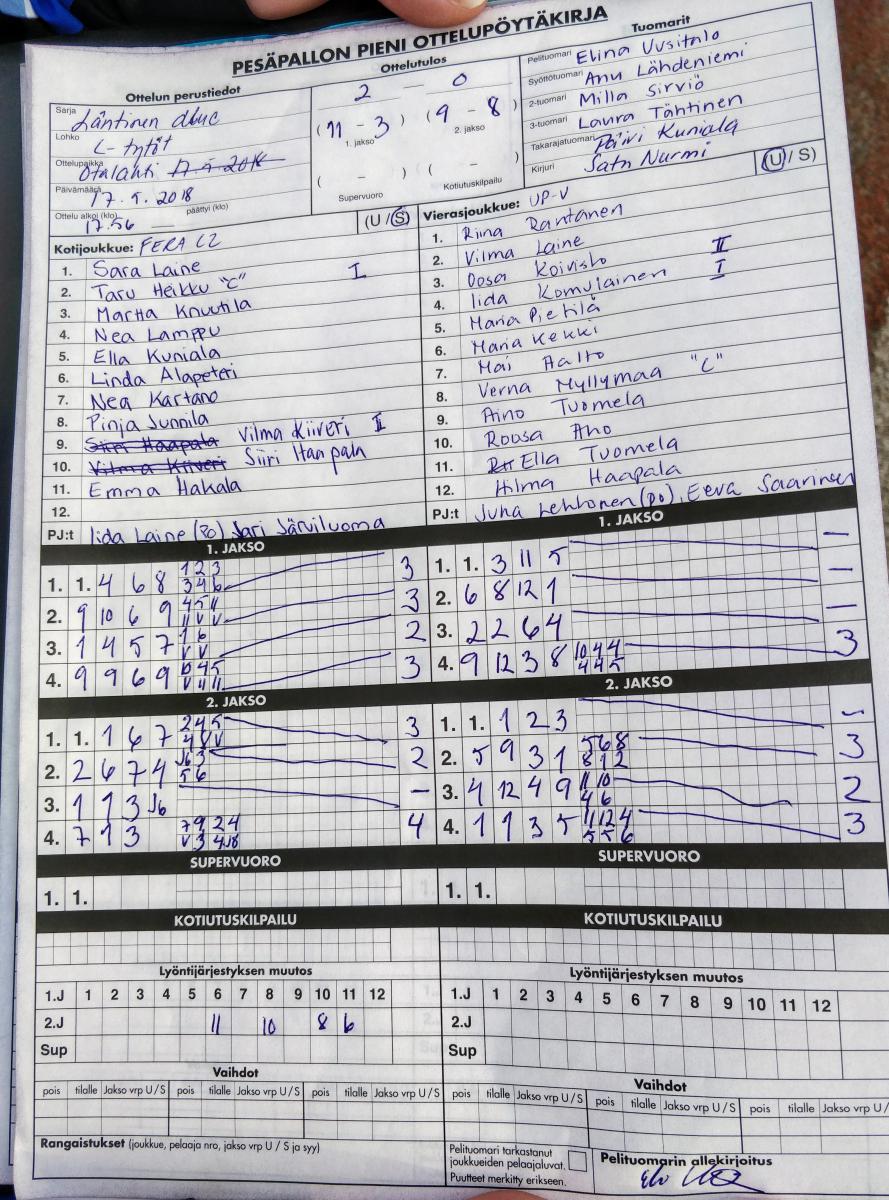 PESÄPALLON PIENI OTTELUPÖYTÄKIRJA
Ottelun perustiedot
Sarja Läntinen
Lohko C-tytöt
Ottelupaikka Otalahti
Päivämäärä 17.5.2018
Ottelu alkoi (klo) 17.56 päättyi (klo)
Ottelutulos
2 - 0
(11 - 3) (9 - 8)
1. jakso 2. jakso
( - ) ( - )
Supervuoro Kotiutuskilpailu
Tuomarit
Pelituomari Elina Uusitalo
Syöttötuomari Anu Lähdeniemi
2-tuomari Milla Sirviö
3-tuomari Laura Tähtinen
Takarajatuomari Päivi Kuniala
Kirjuri Satu Nurmi
Kotijoukkue: FERA C2 (U/S)
1. Sara Laine
2. Taru Heikku "C" I
3. Martta Knuutila
4. Nea Lamppu
5. Ella Kuniala
6. Linda Alapeteri
7. Nea Kartano
8. Pinja Junnila
9. Siiri Haapala Vilma Kiiveri II
10. Vilma Kiiveri Siiri Haapala
11. Emma Hakala
12.
PJ:t Iida Laine (PO) Jari Järviluoma
Vierasjoukkue: UP-V (U/S)
1. Riina Rantanen
2. Vilma Laine
3. Oosa Koivisto II
4. Iida Komulainen I
5. Maria Pietilä
6. Maria Kekki
7. Mai Aalto
8. Verna Myllymaa "C"
9. Aino Tuomela
10. Roosa Aho
11. Ella Tuomela
12. Hilma Haapala
PJ:t Juha Lehtonen (po), Eeva Saarinen
1. JAKSO
1. 1. 4 6 8 1 2 3 3
3 4 6
2. 9 10 6 9 4 5 11 3
11 V V
3. 1 4 5 7 1 6 2
V V
4. 9 9 6 9 10 4 5 3
V 11 11
1. JAKSO
1. 1. 3 11 5 -
2. 6 8 12 1 -
3. 2 2 6 4 -
4. 9 12 3 8 10 4 4 3
4 4 5
2. JAKSO
1. 1. 1 6 7 2 4 5 3
4 8 V
2. 2 6 7 4 J6 3 2
5 6
3. 1 1 3 J6 -
4. 7 1 3 7 9 2 4 4
V 3 4 J8
2. JAKSO
1. 1. 1 2 3 -
2. 5 9 3 1 5 6 8 3
8 1 2
3. 4 12 4 9 11 10 2
4 6
4. 1 1 3 5 11 12 4 3
5 5 6
SUPERVUORO
1. 1.
SUPERVUORO
1. 1.
KOTIUTUSKILPAILU
KOTIUTUSKILPAILU
Lyöntijärjestyksen muutos
1.J 1 2 3 4 5 6 7 8 9 10 11 12
2.J 11 10 8 6
Sup
Lyöntijärjestyksen muutos
1.J 1 2 3 4 5 6 7 8 9 10 11 12
2.J
Sup
Vaihdot
pois tilalle Jakso vrp U/S pois tilalle Jakso vrp U/S pois tilalle Jakso vrp U/S
Vaihdot
pois tilalle Jakso vrp U/S pois tilalle Jakso vrp U/S pois tilalle Jakso vrp U/
Rangaistukset (joukkue, pelaaja nro, jakso vrp U / S ja syy)
Pelituomari tarkastanut
joukkueiden pelaajaluvat.
Puutteet merkitty erikseen.
Pelituomarin allekirjoitus